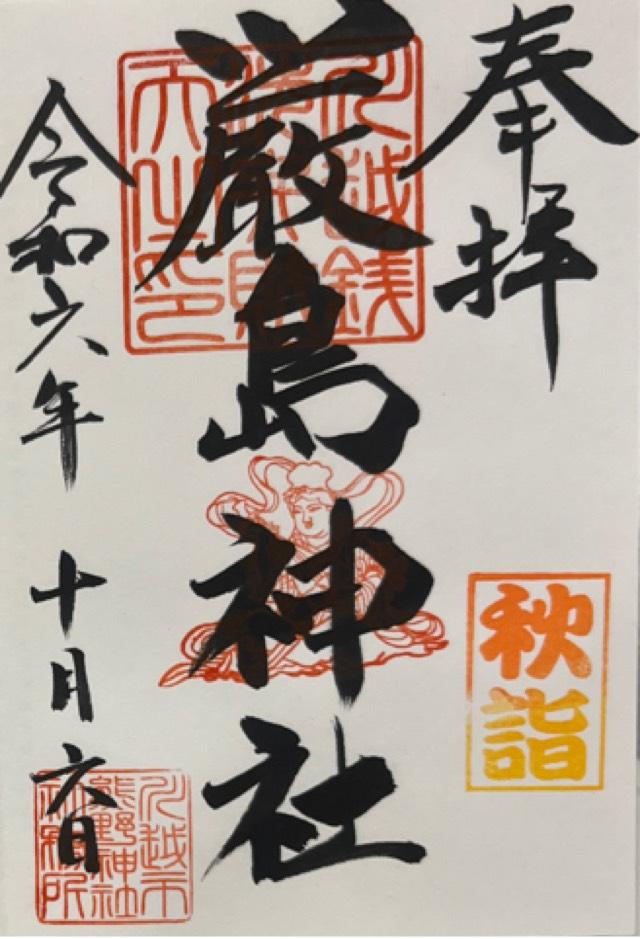 奉拝
秋詣
厳島神社
川越銭
洗弁財
天之印
令和六年 十月六日
川越市
熊野神社
社務所